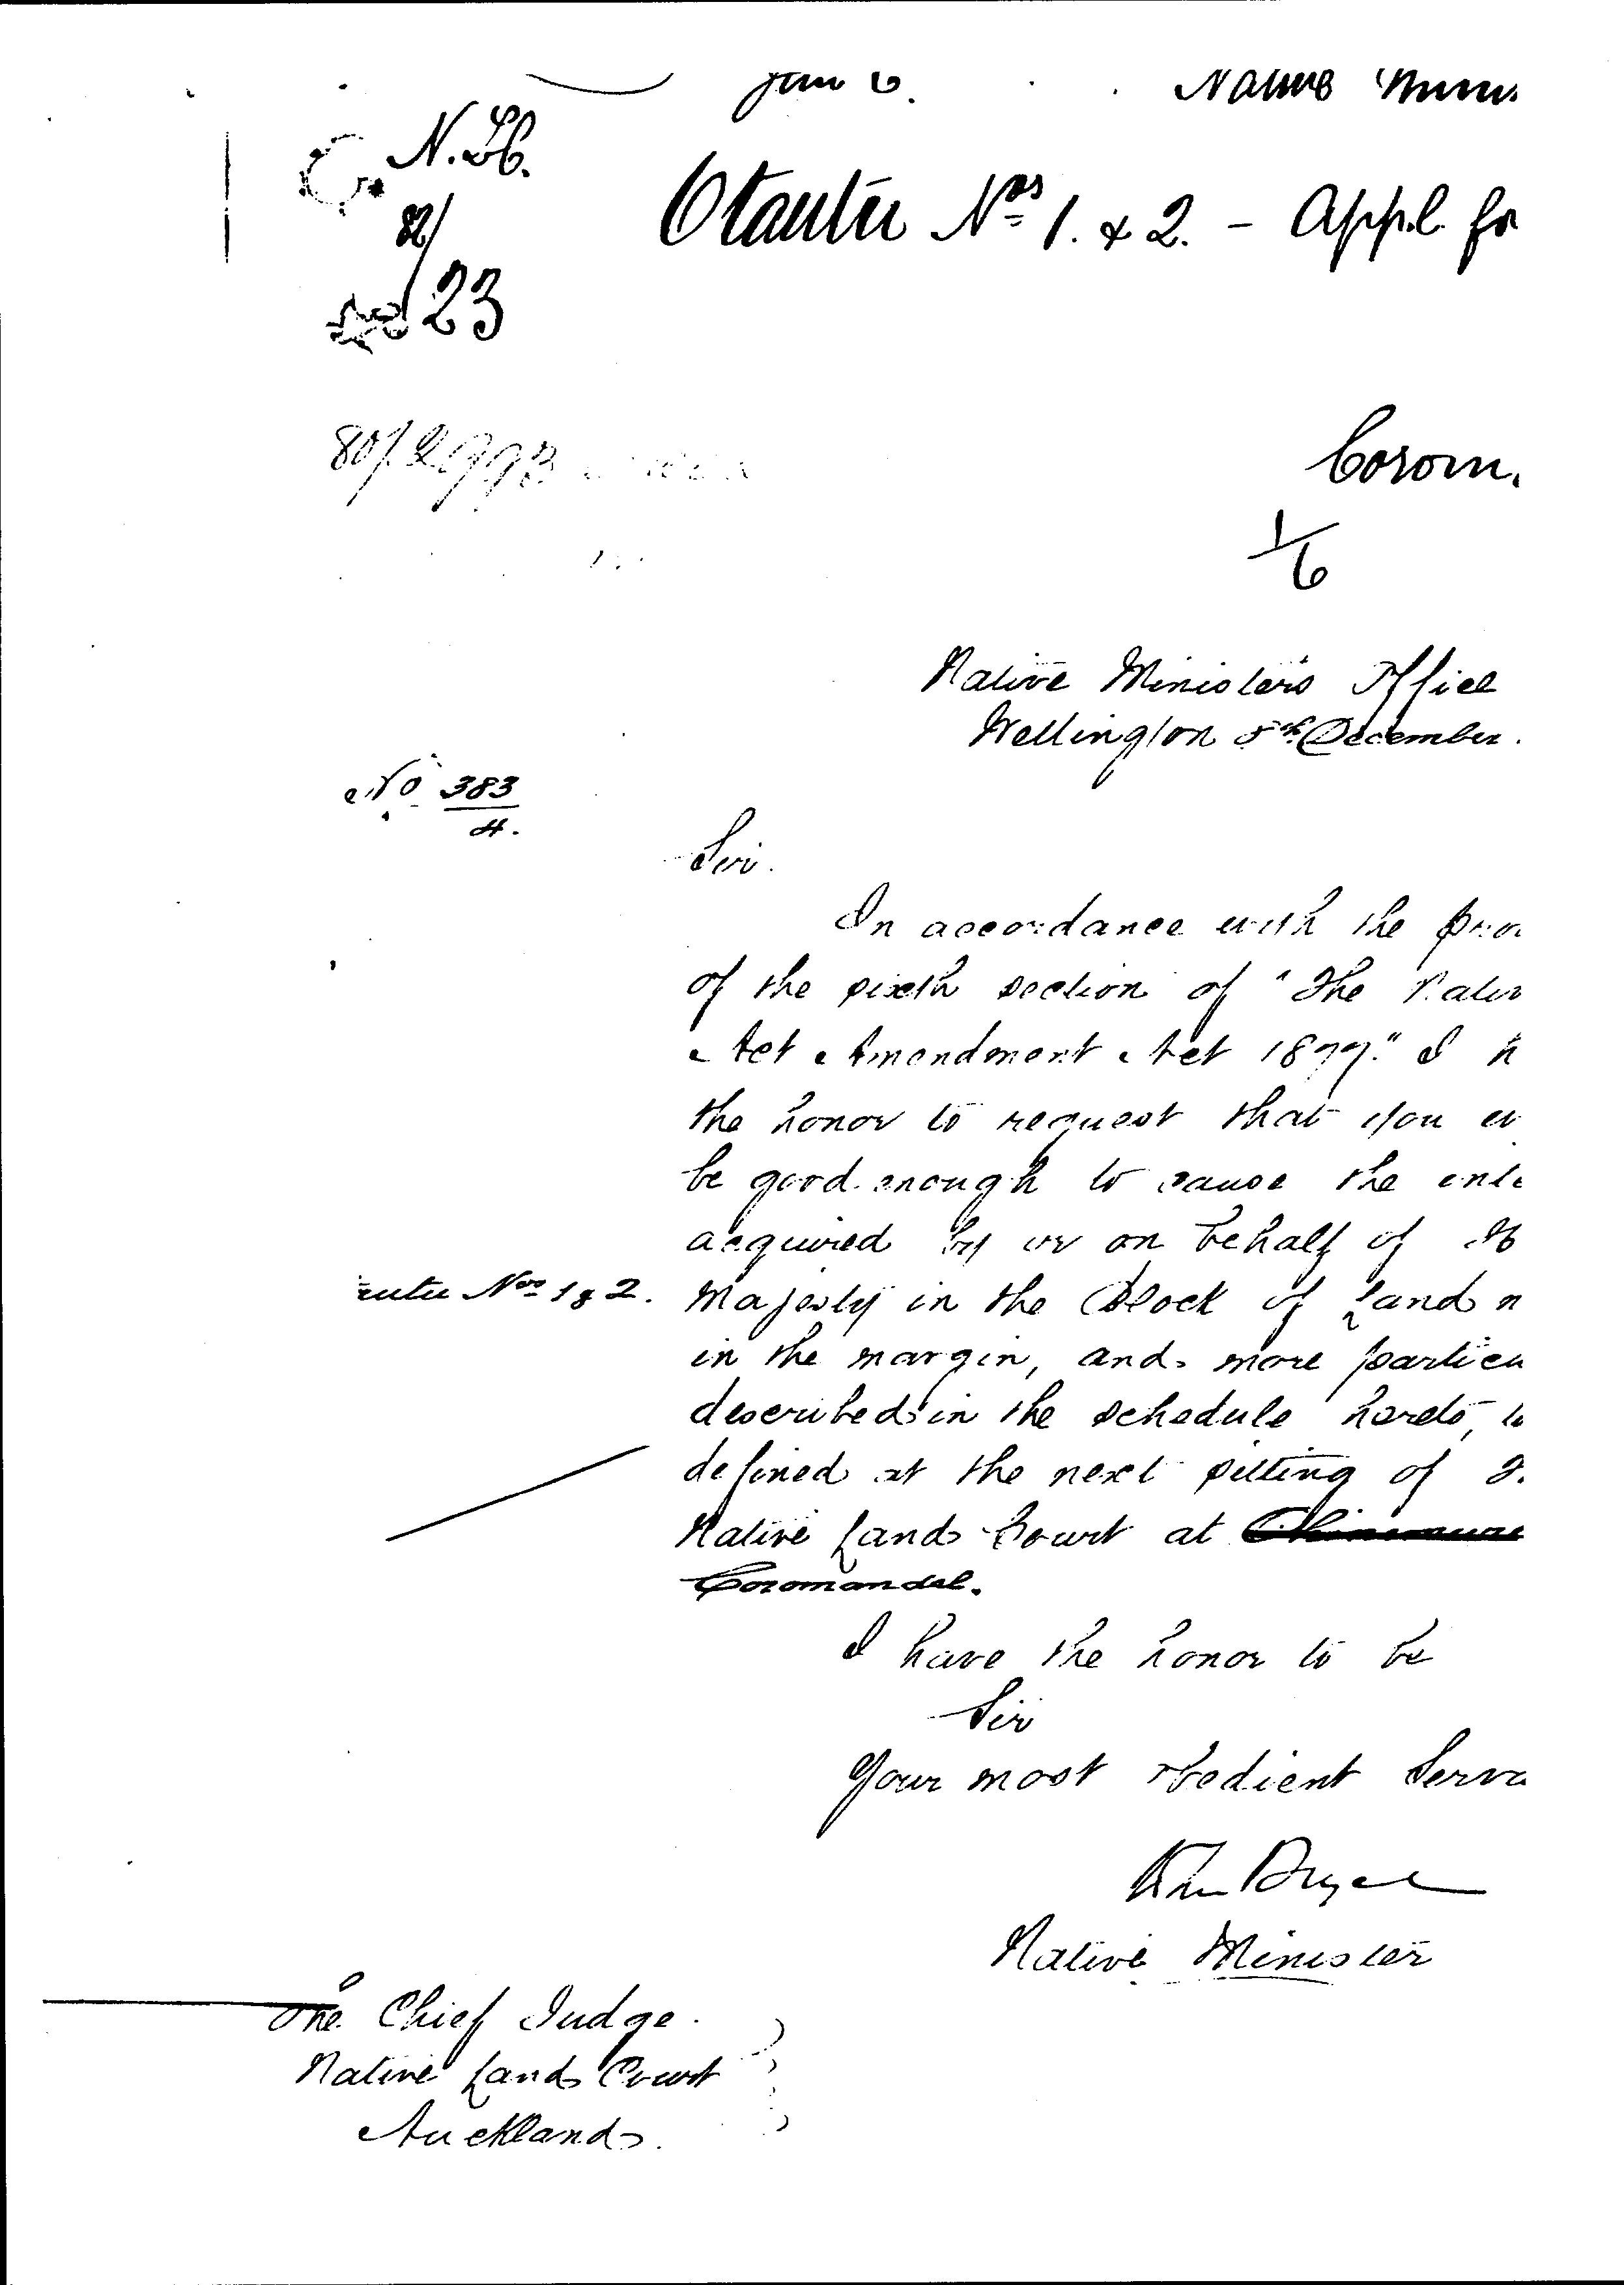 Native
N. Lc.
Otautu Nos 1. & 2. - Appl. fo
82/
23
80/2993
Corom.
1/6
Native Minister's Office
Wellington 5th December.
No 383
4.
Sir.
In accordance with the prov
of the sixth section of "The Nativ
Act Amendment Act 1877." I h
the honor to request that you w
be good enough to cause the inte
acquired by or on behalf of H
utu Nos 1 & 2. Majesty in the Block of Land n
in the margin, and more particu
described in the schedule hereto, to
defined at the next sitting of t
Native Land Court at
Coromandel.
I have the honor to be
Sir
Your most obedient Serva
Jno Bryce
Native Minister
The Chief Judge.
Native Land Court
Auckland.